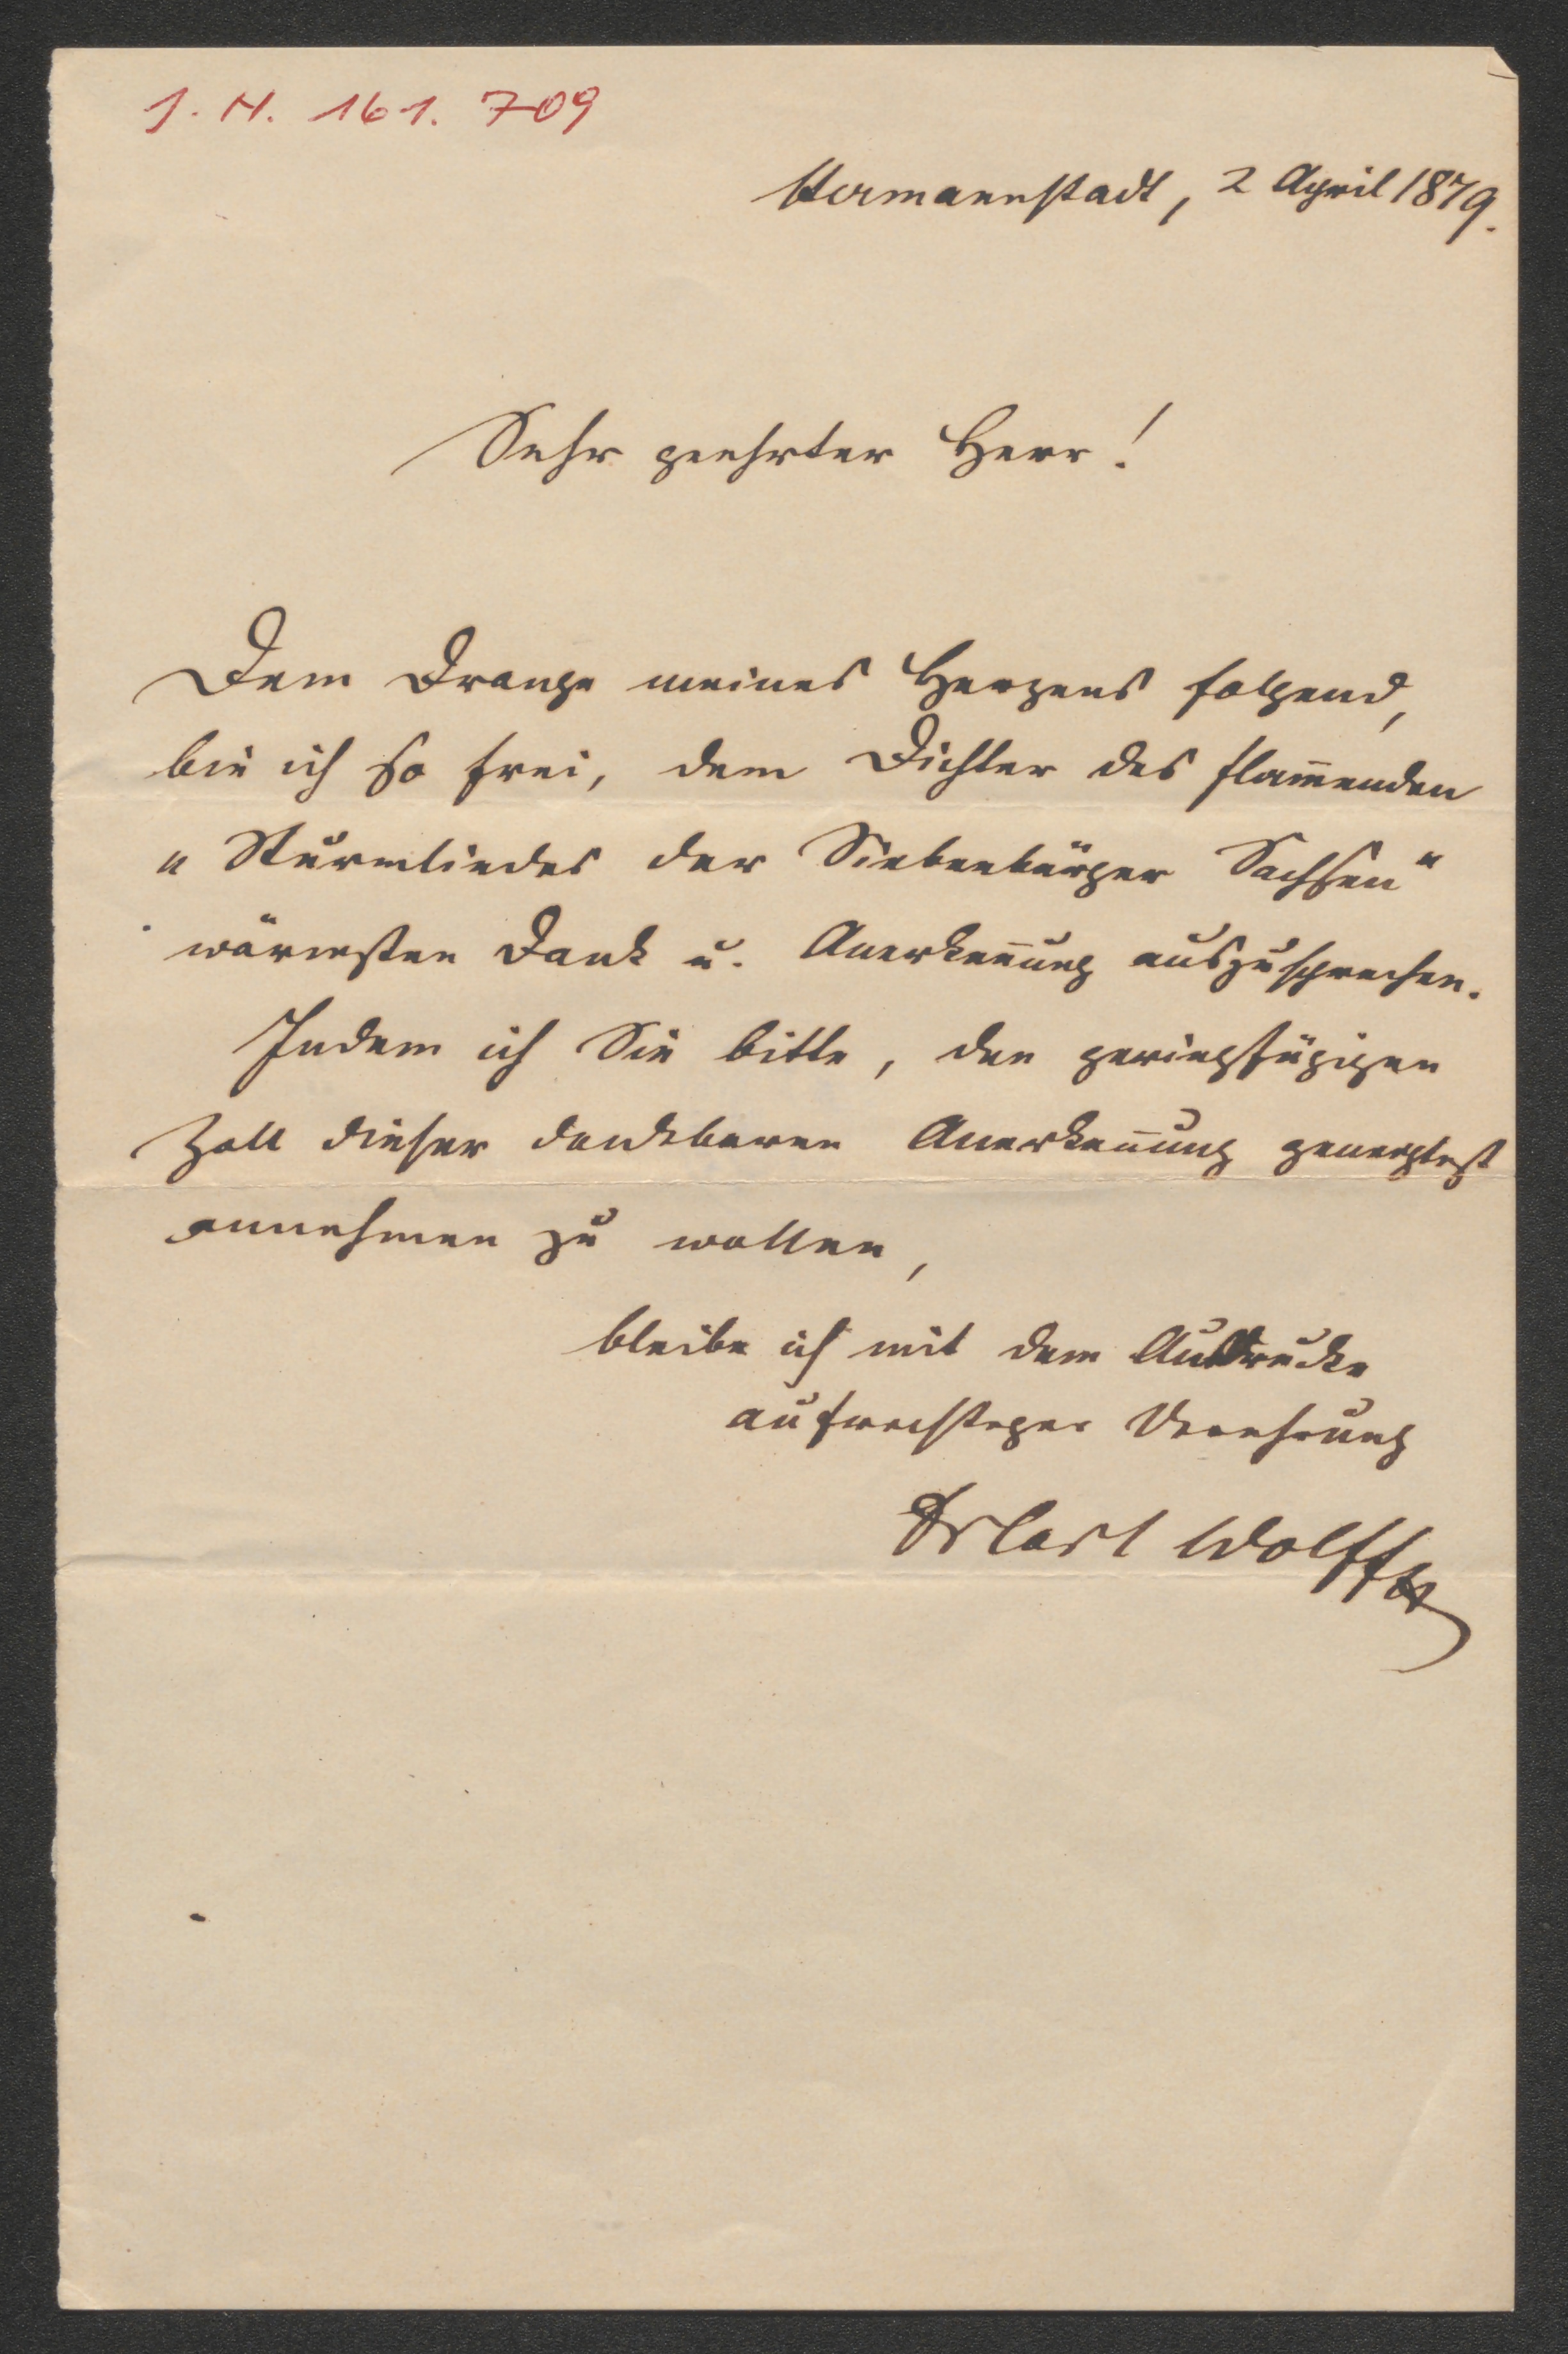 J. N. 161.709
Hermannstadt, 2 April 1879.
Sehr geehrter Herr!
Dem Drange meines Herzens folgend,
bin ich so frei, dem Dichter des flam̅enden
„Sturmliedes der Siebenbürger Sachsen“
wärmsten Dank u. Anerken̅ung auszusprechen.
Indem ich Sie bitte, den geringfügigen
Zoll dieser dankbaren Anerken̅ung geneigtest
annehmen zu wollen,
bleibe ich mit dem Ausdrucke
aufrichtiger Verehrung
Dr Carl Wolff